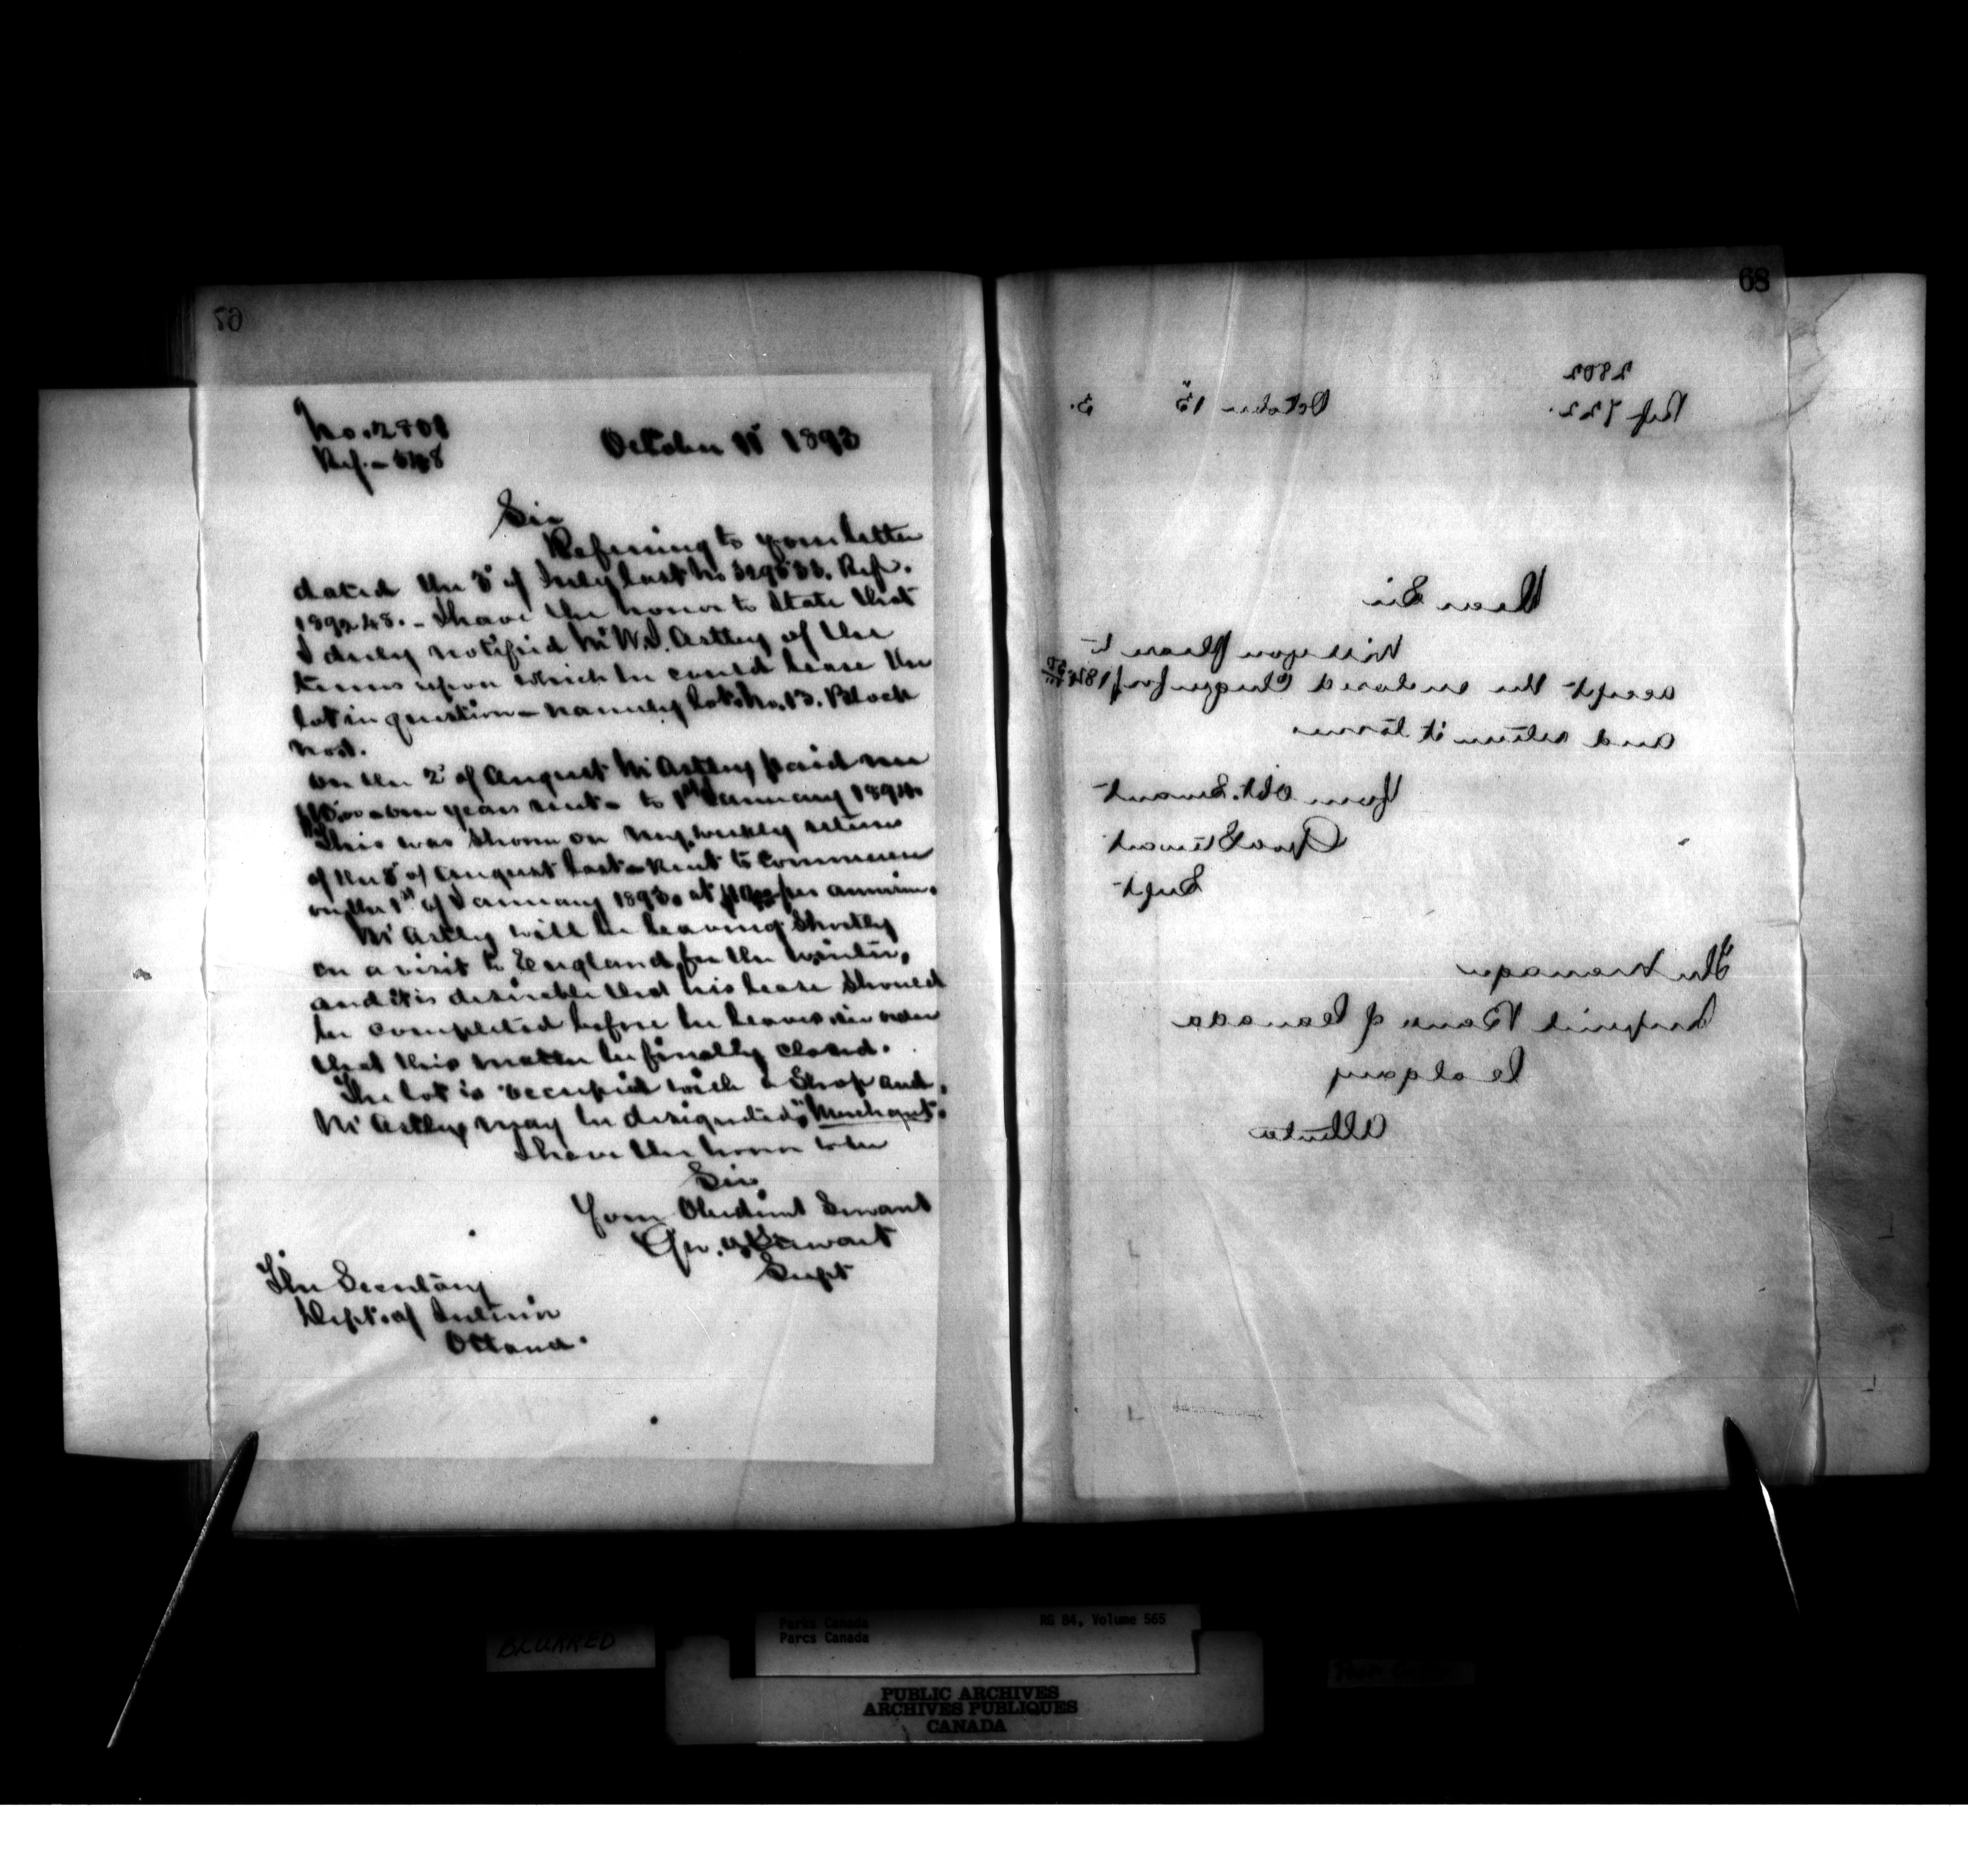 67
No. 2801
Ref. - 548
October 11 1893
Sir
Referring to your letter
dated the 3 of July last No 329533. Ref.
189248. - I have the honor to state that
I duly notified Mr W.J. Astley of the
terms upon which he could lease the
lot in question - namely lot No. 13. Block
No 1.
On the 2 of August Mr Astley paid me
one years rent - to 1st January 1894.
This was shown on my weekly return
of the 5 of August last - Rent to commence
on the 1st of January 1893. at per annum.
Mr Astley will be leaving shortly
on a visit to England for the winter,
and it is desirable that his lease should
be completed before he leaves in order
that this matter be finally closed.
The lot is occupied with a Shop and,
Mr Astley may be designated "Merchant".
I have the honor to be
Sir
Your Obedient Servant
Geo. A Stewart
Supt
The Secretary
Dept. of Interior
Ottawa.
68
2802
Ref 722.
October 13 3.
Dear Sir
Will you please to
accept the enclosed Cheque for
and return it to me
Your Obt. Servant
Geo A Stewart
Supt
The Manager
Imperial Bank of Canada
Calgary
Alberta
BLURRED
Parks Canada
Parcs Canada
RG 84, Volume 565
PUBLIC ARCHIVES
ARCHIVES PUBLIQUES
CANADA